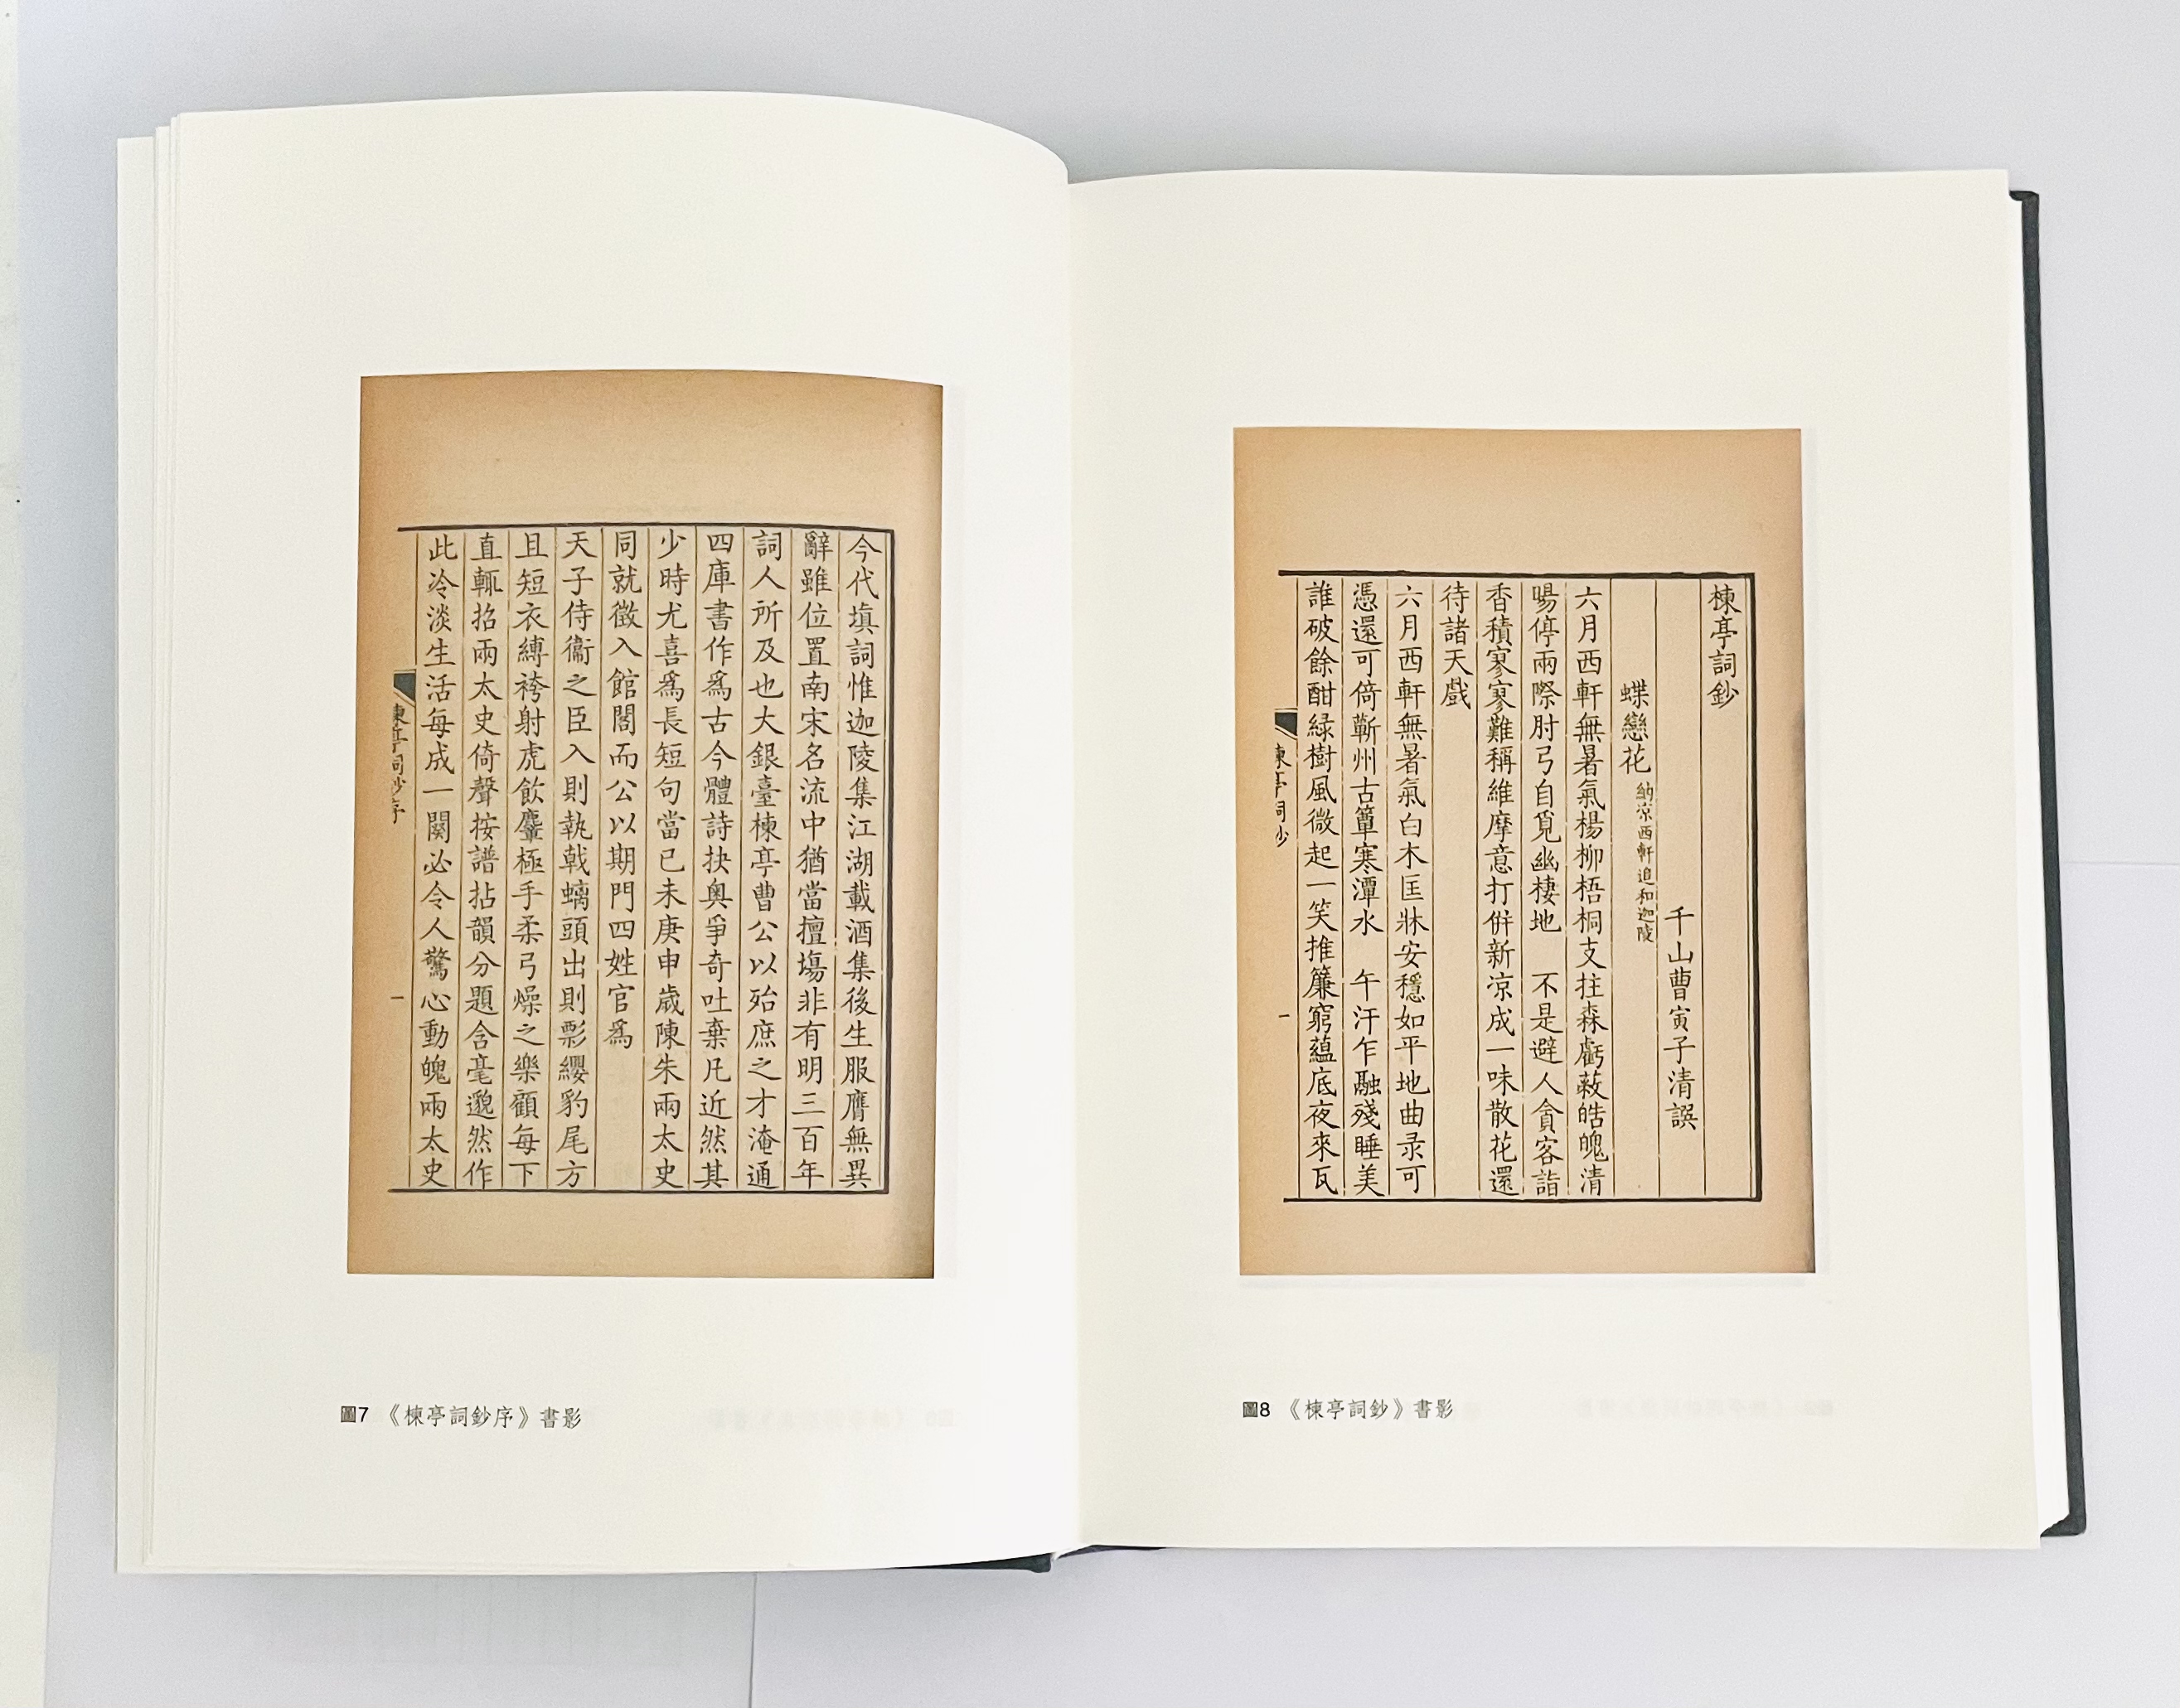 今代填詞惟迦陵集江湖載酒集後生服膺無異
辭雖位置南宋名流中猶當擅場非有明三百年
詞人所及也大銀臺楝亭曹公以殆庶之才淹通
四庫書作爲古今體詩抉奧爭奇吐棄凡近然其
少時尤喜爲長短句當己未庚申歲陳朱兩太史
同就徵入館閣而公以期門四姓官爲
天子侍衞之臣入則執戟螭頭出則影纓豹尾方
且短衣縛袴射虎飲麞極手柔弓燥之樂顧每下
直輒招兩太史倚聲按譜拈韻分題含毫邈然作
此冷淡生活每成一闋必令人驚心動魄兩太史
楝亭詞鈔序
一
圖7 《楝亭詞鈔序》書影
楝亭詞鈔
千山曹寅子清譔
蝶戀花 納凉西軒追和迦陵
六月西軒無暑氣楊柳梧桐支拄森虧蔽皓魄清
暘停兩際肘弓自覓幽棲地 不是避人貪客詣
香積寥寥難稱維摩意打併新凉成一味散花還
待諸天戲
六月西軒無暑氣白木匡牀安穩如平地曲录可
憑還可倚蘄州古簟寒潭水 午汗乍融殘睡美
誰破餘酣緑樹風微起一笑推簾窮蘊底夜來瓦
楝亭詞鈔
一
圖8 《楝亭詞鈔》書影